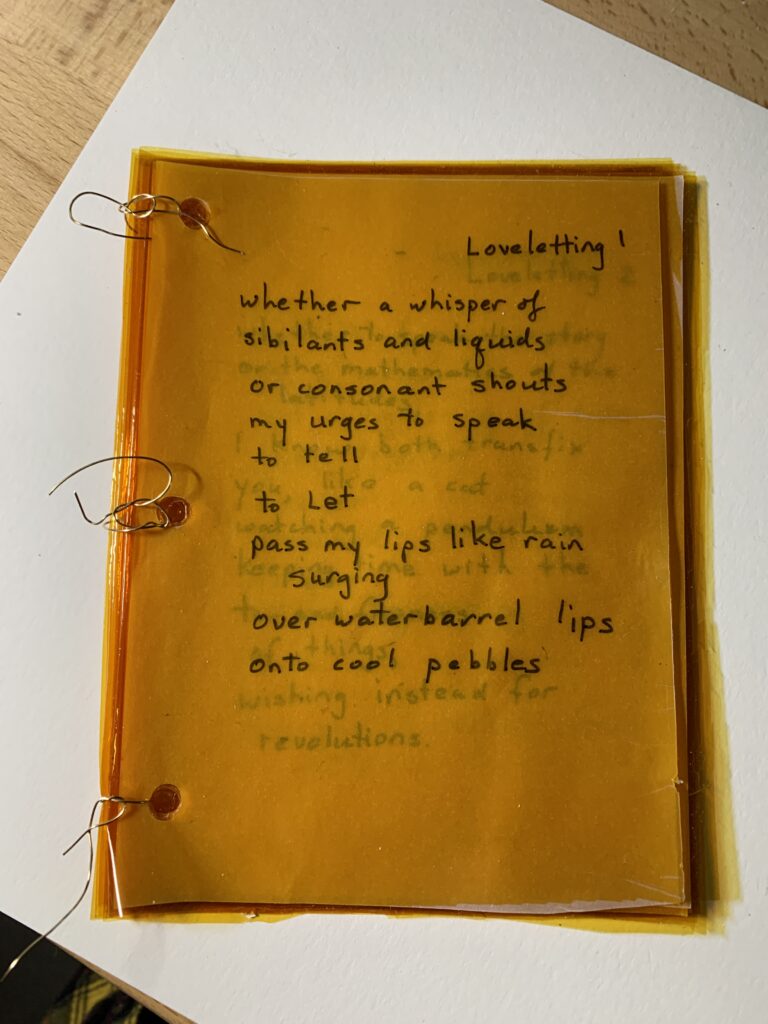 Loveletting 1
whether a whisper of
sibilants and liquids
or consonant shouts
my urges to speak
to tell
to Let
pass my lips like rain
surging
over waterbarrel lips
onto cool pebbles
Loveletting 2
or the mathematics of the
latitudes
I know both transfix
you, like a cat
watching a pendulum
keeping time with the
of things
wishing instead for
revolutions.